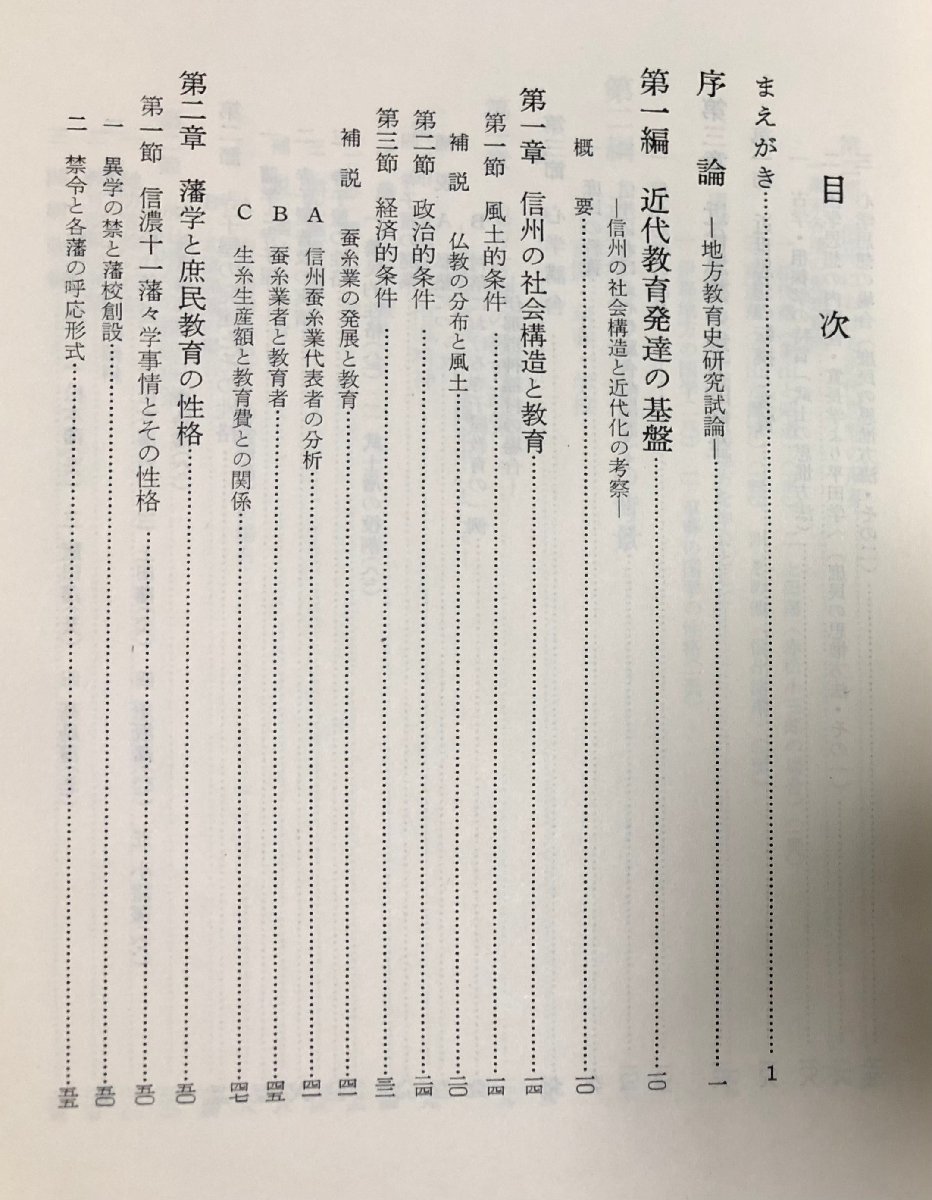 目次
まえがき……1
序論 ―地方教育史研究試論―……一
第一編 近代教育発達の基盤……一〇
―信州の社会構造と近代化の考察―
概要……一〇
第一章 信州の社会構造と教育……一四
第一節 風土的条件……一四
補説 仏教の分布と風土……二〇
第二節 政治的条件……二四
第三節 経済的条件……三二
補説 蚕糸業の発展と教育……四一
A 信州蚕糸業代表者の分析……四一
B 蚕糸業者と教育者……四五
C 生糸生産額と教育費との関係……四七
第二章 藩学と庶民教育の性格……五〇
第一節 信濃十一藩々学事情とその性格……五〇
一 異学の禁と藩校創設……五〇
二 禁令と各藩の呼応形式……五五